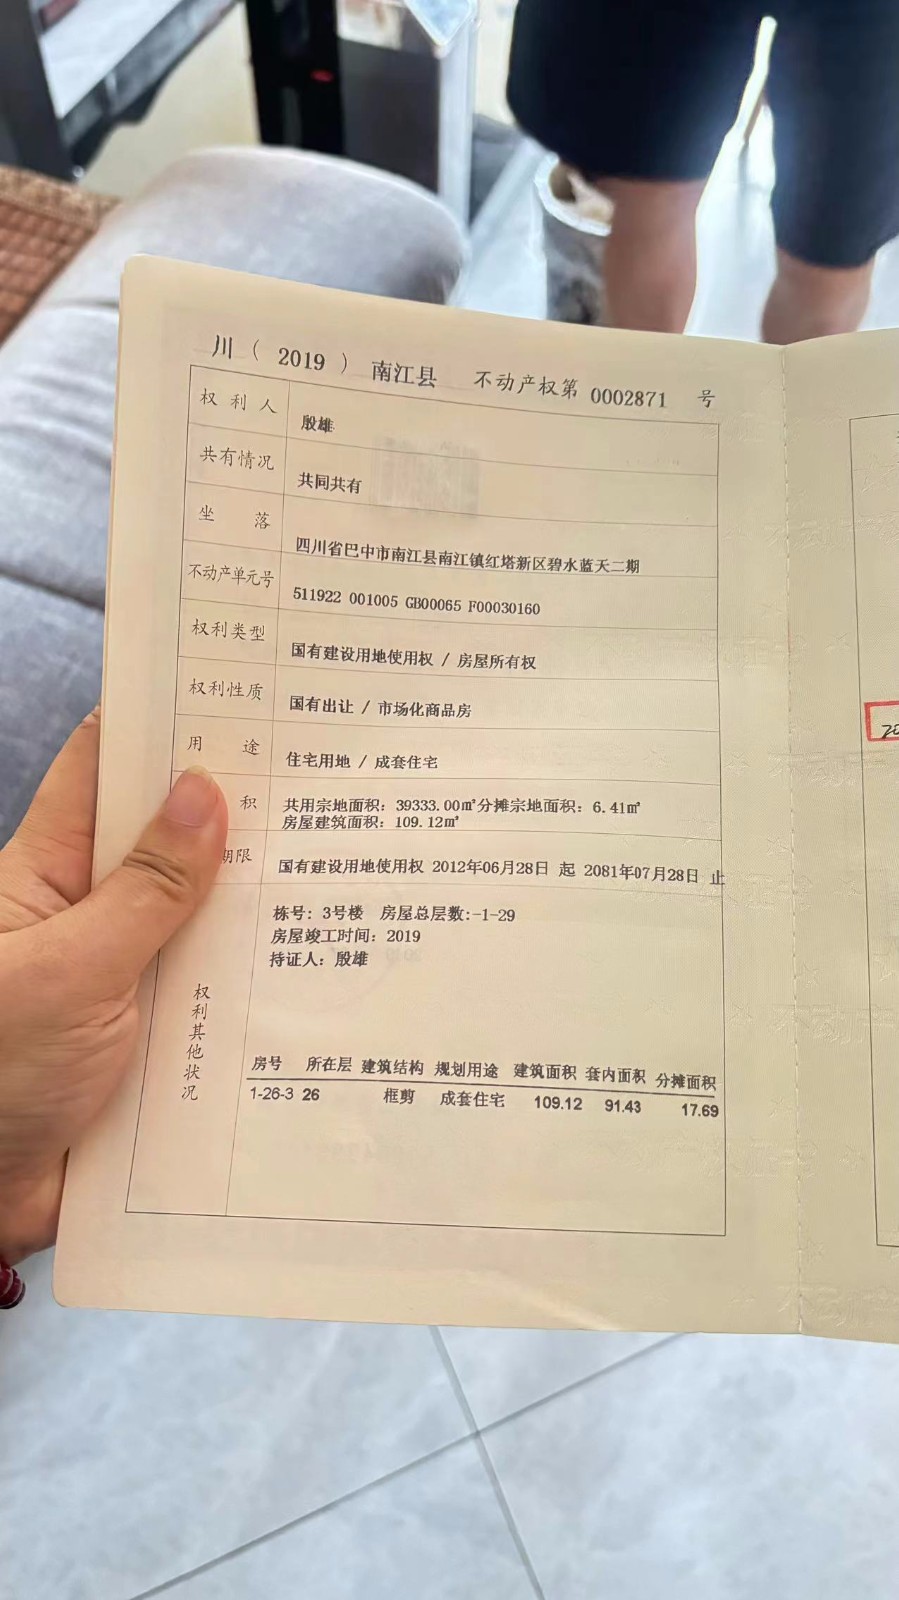 川（ 2019 ） 南江县 不动产权第 0002871 号
权利人 殷雄
共有情况 共同共有
坐落 四川省巴中市南江县南江镇红塔新区碧水蓝天二期
不动产单元号 511922 001005 GB00065 F00030160
权利类型 国有建设用地使用权 / 房屋所有权
权利性质 国有出让 / 市场化商品房
用途 住宅用地 / 成套住宅
积 共用宗地面积：39333.00㎡分摊宗地面积：6.41㎡
房屋建筑面积：109.12㎡
期限 国有建设用地使用权 2012年06月28日 起 2081年07月28日 止
权利其他状况
栋号：3号楼 房屋总层数:-1-29
房屋竣工时间：2019
持证人：殷雄
房号 所在层 建筑结构 规划用途 建筑面积 套内面积 分摊面积
1-26-3 26 框剪 成套住宅 109.12 91.43 17.69